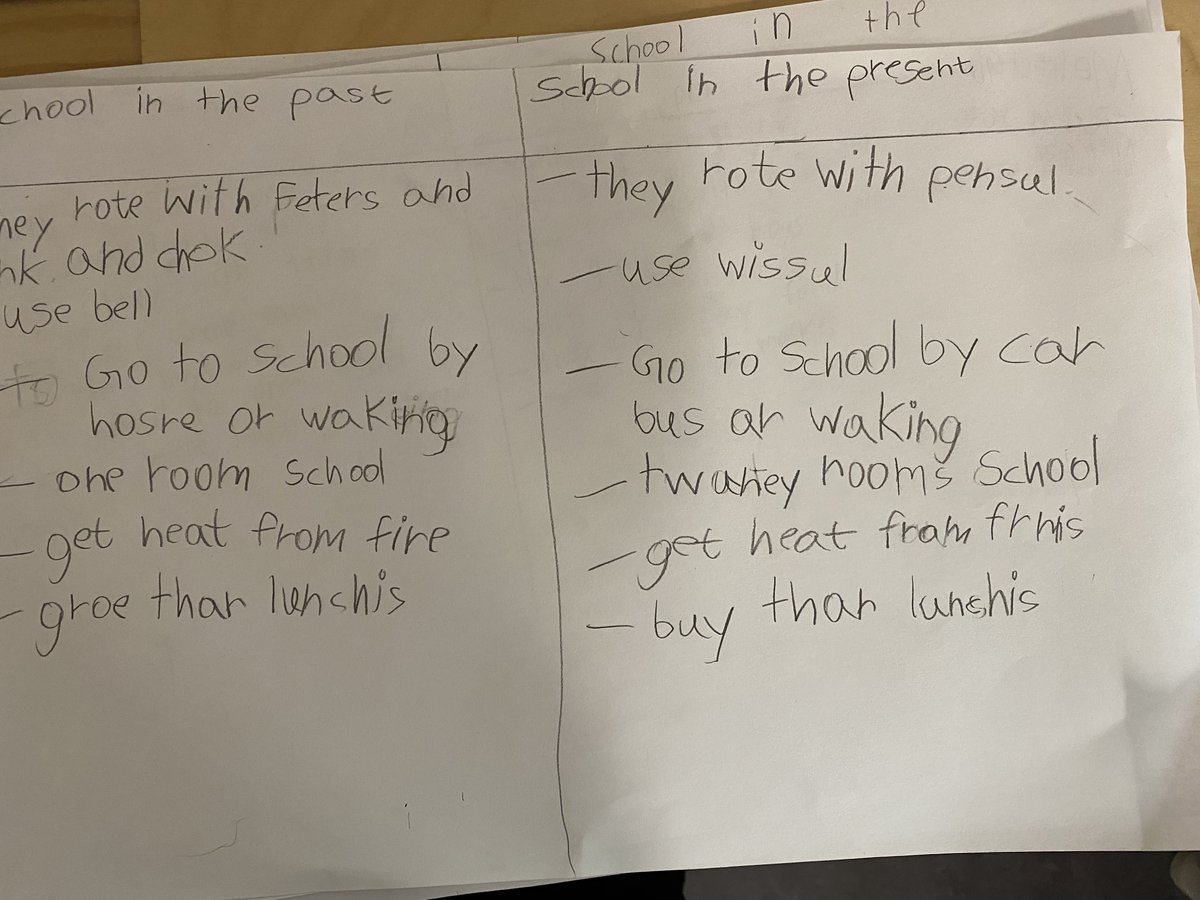 School in the
chool in the past
hey rote with Feters and
nk and chok
use bell
Go to school by
hosre or waking
- one room school
- get heat from fire
- groe thar lunchis
School in the present
- they rote with pensul
- use wissul
- Go to School by car
bus ar waking
- twantey rooms School
- get heat fram frnis
- buy thar lunchis